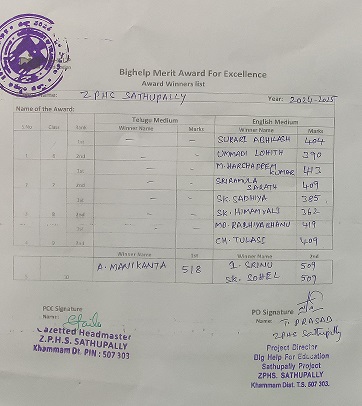 Bighelp Merit Award For Excellence
Award Winners list
Name: ZPHS SATHUPALLY Year: 2024-2025
Name of the Award:
Telugu Medium English Medium
S.No Class Rank Winner Name Marks Winner Name Marks
1st — — SURARI ABHILASH 404
1 6 2nd — — UMMADI LOHITH 390
1st — — M. HARCHADEEM KUMAR 413
2 7 2nd — — SRIRAMULA SARATH 409
1st — — SK. SADHIYA 385
3 8 2nd — — SK. HIMAMVALI 362
1st — — MD. RABHIYABHANU 419
4 9 2nd — — CH. TULASI 409
Winner Name 1st Winner Name 2nd
5 10 A. MANIKANTA 518 1. SRINU 509
SK. SOHEL 509
PCC Signature
Name:
Gazetted Headmaster
Z.P.H.S. SATHUPALLY
Khammam Dt. PIN : 507 303
PD Signature
Name: T. PRASAD
ZPHS Sathupally
Project Director
Big Help For Education
Sathupally Project
ZPHS. SATHUPALLY
Khammam Dist. T.S. 507 303.